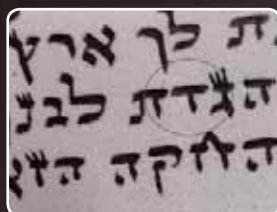 ת לך ארץ
הגדת לבנ
החזקה הז